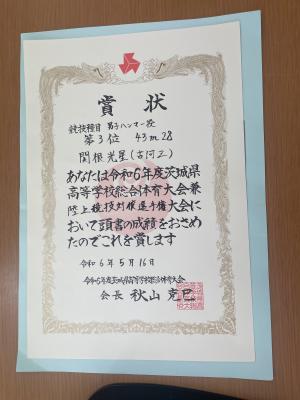 賞状
競技種目 男子ハンマー投
第3位 43m28
関根光星(古河工)
あなたは令和6年度茨城県
高等学校総合体育大会兼
陸上競技対校選手権大会に
おいて頭書の成績をおさめ
たのでこれを賞します
令和6年5月16日
令和6年度茨城県高等学校総合体育大会
会長 秋山克巳